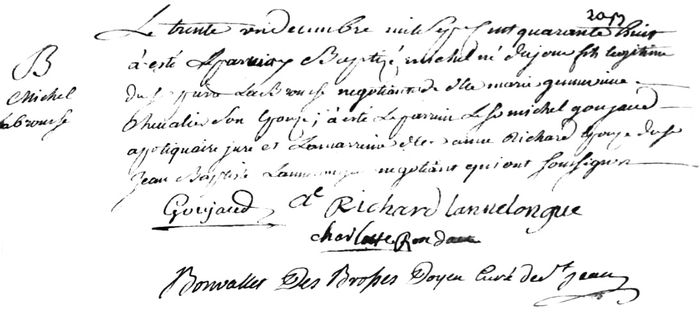 2057
Le trente un decembre mil sept cent quarante huit
B
Michel
Labrousse
a esté par moy Baptizé michel né dujour fils legitime
du Sr Labrousse negotiant et de dlle marie
Chevalier Son Epouze; a esté Le parrain Le Sr michel goujaud
apotiquaire juré et La marraine dlle anne Richard Epouze du Sr
Jean Baptiste Lannelongue negotiant qui ont Soussignez
Goujaud A Richard Lannelongue
charlotte
Bonvallet Des Brosses Doyen Curé de St Jean